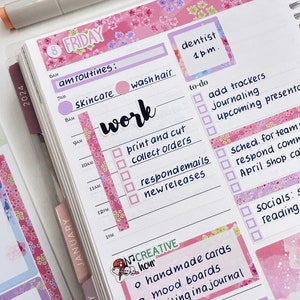 8 FRIDAY
8AM
am routines:
skincare
wash hair
work
print and cut
collect orders
respond emails
new releases
CREATIVE
hour
handmade cards
mood boards
in a journal
dentist
1 pm.
to-do
add trackers
journaling
upcoming present
sched. for team
respond comm
April shop ca
socials:
reading
2024
JANUARY
9AM
10AM
11AM
12PM
1PM